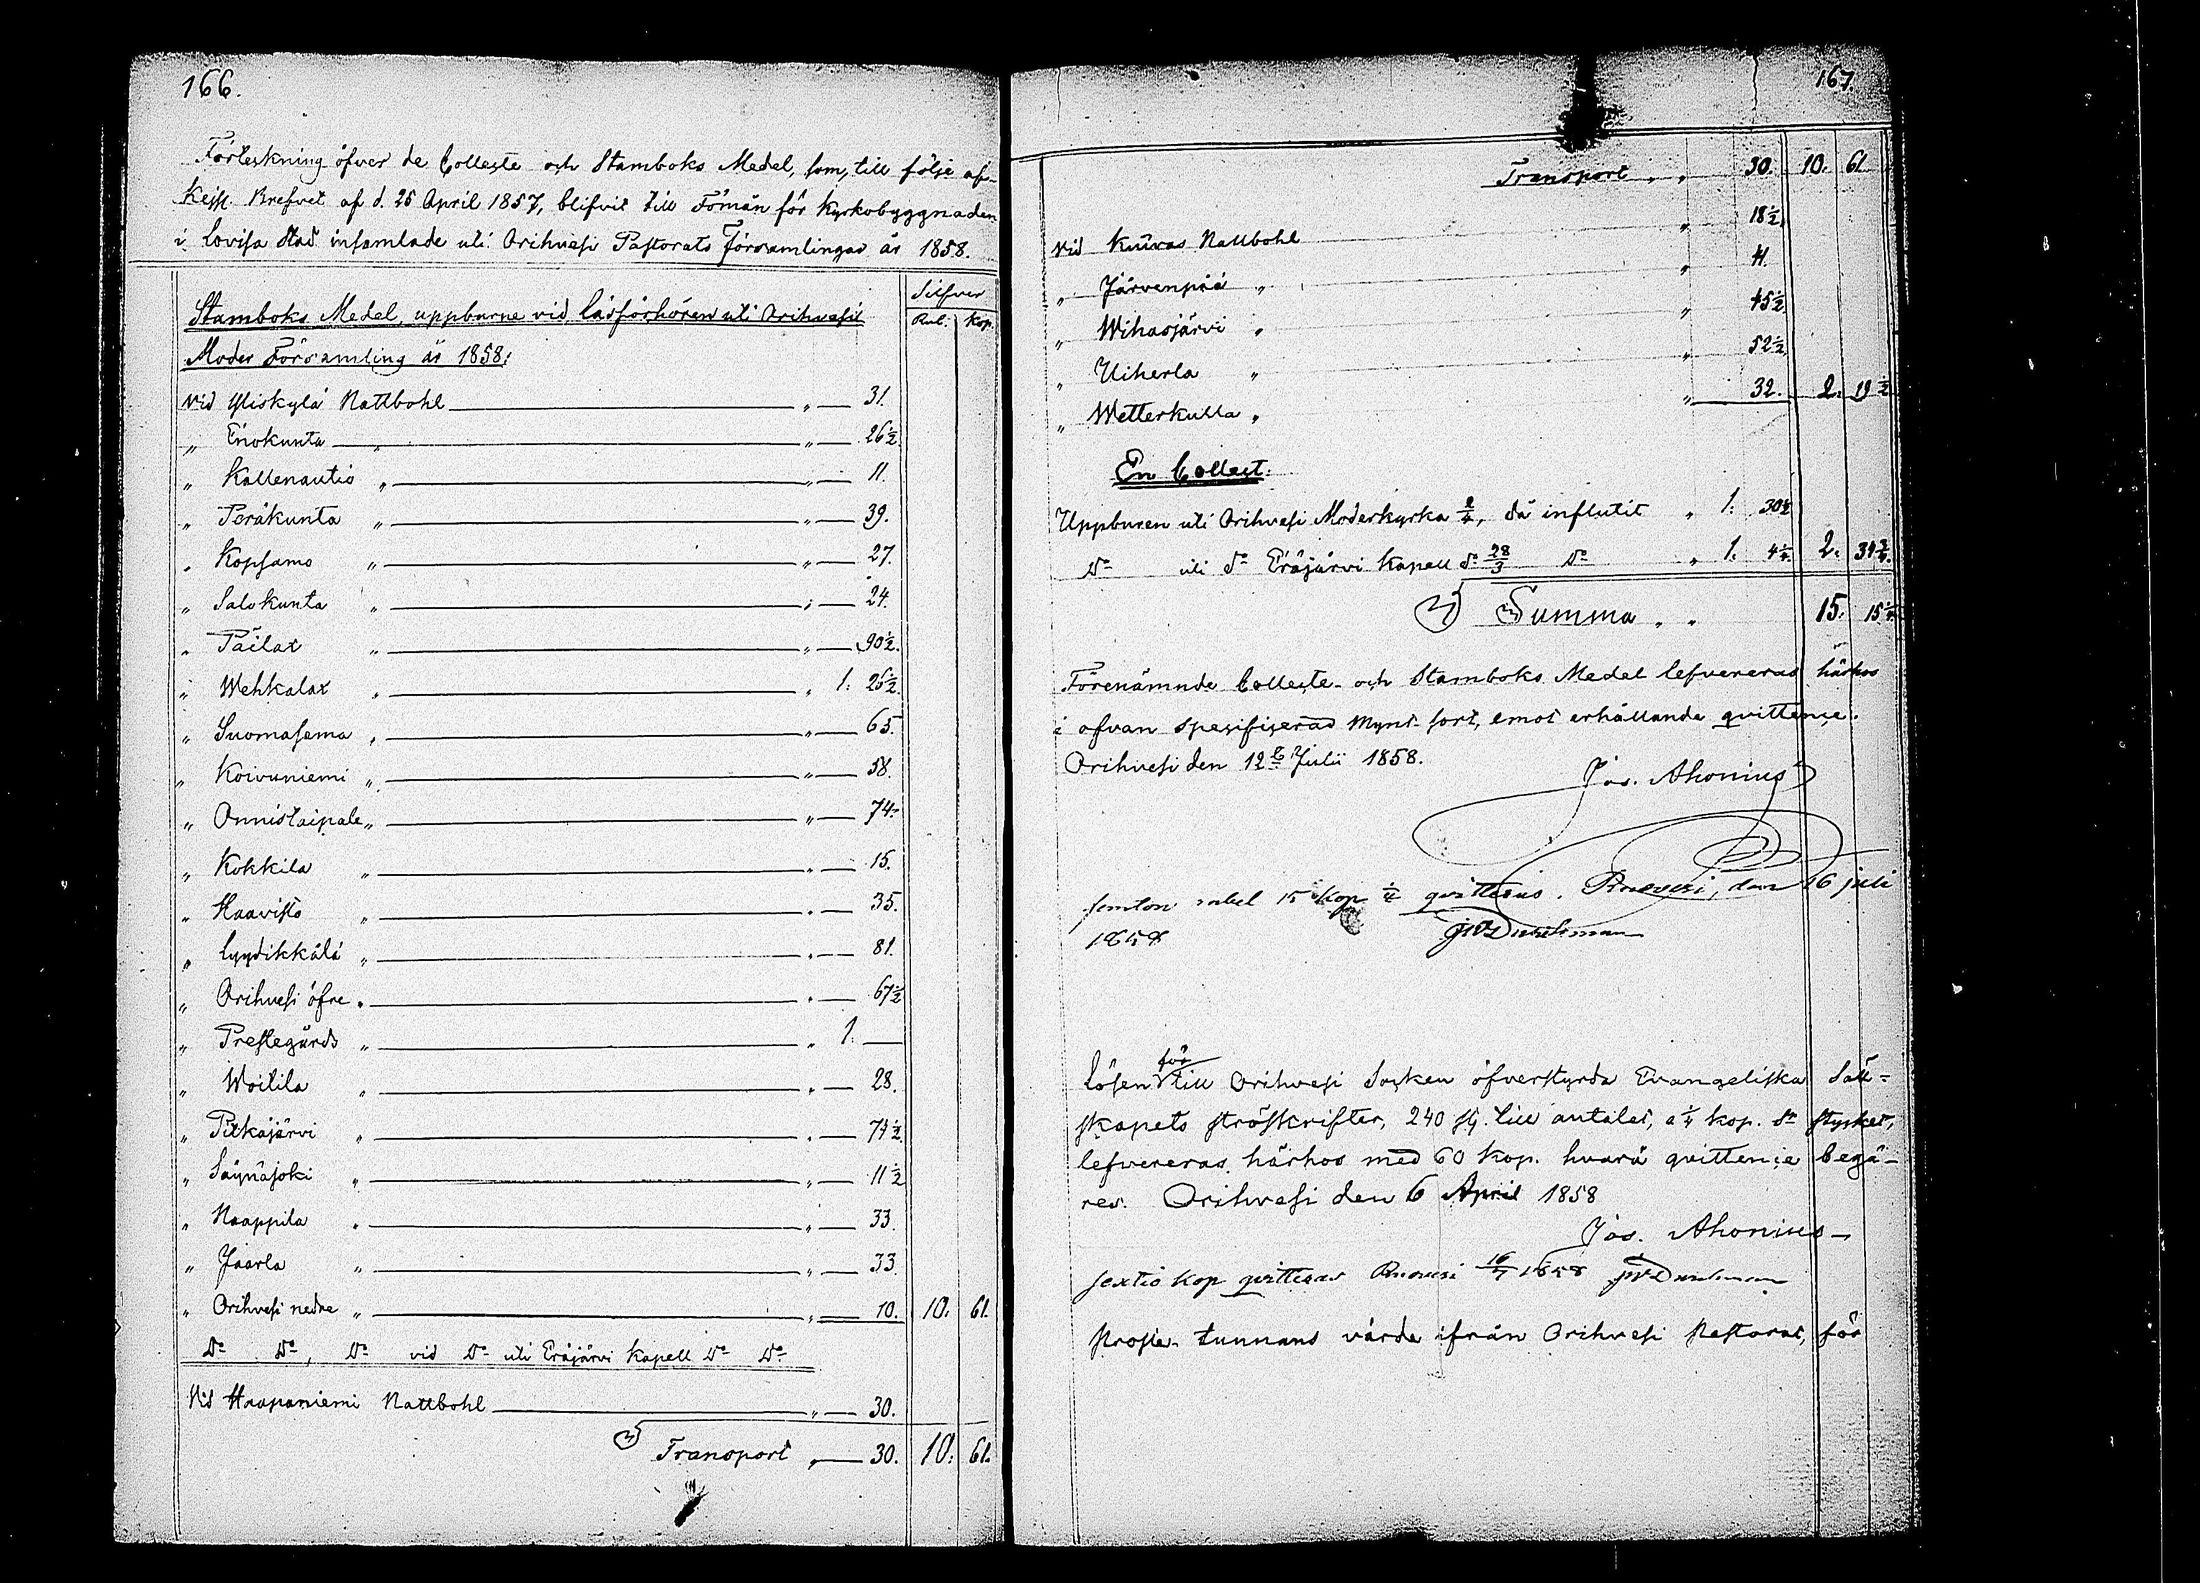 166.
Förteckning öfver de Collecte och Stamboks Medel, som, till följe af
Kejsl. Brefvet af d. 25 April 1857, blifvit till Fömån för Kyrkobyggnaden
i Lovisa Stad insamlade uti Orihvesi Pastorats Församlingar år 1858.
Silfver
Stamboks Medel, uppburne vid Läsförhören uti Orihvesi
Rub. Kop.
Moder Församling år 1858:
Vid Yliskylä Nattbohl " 31.
" Enokunta " " 26½.
" Kallenautio " " 11.
" Peräkunta " " 39.
" Kopsamo " " 27.
" Salokunta " " 24.
" Päilax " " 90½.
" Wehkalax " " 1: 25½.
" Suomasema " " 65.
" Koivuniemi " " 58.
" Onnistaipale " " 74.
" Kokkila " " 15.
" Haavisto " " 35.
" Lyydikkälä " " 81.
" Orihvesi öfre " " 67½
" Prestegårds " " 1. —
" Woitila " " 28.
" Pitkäjärvi " " 74½
" Säynäjoki " " 11½
" Naappila " " 33.
" Jaarla " " 33.
" Orihvesi nedre " " 10. 10: 61.
Do Do, Do vid Do uti Eräjärvi Kapell Do Do
Vid Haapaniemi Nattbohl " 30.
Transport " 30. 10: 61.
167.
Transport " " 30. 10. 61.
Vid Kuivas Nattbohl " 18½.
" Järvenpää " " 41.
" Wihasjärvi " " 45½
" Uiherla " " 52½
" Wetterkulla " " 32. 2: 19½
En Collect.
Uppburen uti Orihvesi Moderkyrka 2/4, då influtit " 1: 30½
Do uti do Eräjärvi Kapell do 28/3 Do " 1: 4¼ 2: 34¾.
Summa " " 15. 15¼
Förenämnde Collecte- och Stamboks Medel lefvereras härhos
i ofvan specificerad Mynt-sort, emot erhållande qvittence.
Orihvesi den 12e Julii 1858.
Jos. Ahonius
femton rubel 15 kop ¼ qvitteras. Ruovesi, den 16 juli
1858
Lösen för till Orihvesi Socken öfverstyrda Evangeliska Säll-
skapets ströskrifter, 240 st. till antalet, a ¼ kop. Sr stycket,
lefvereras härhos med 60 kop. hvarå qvittence begä-
res. Orihvesi den 6 April 1858
Jos. Ahonius
sextio kop qvitteras Ruovesi 16/7 1858
tunnans värde ifrån Orihvesi Pastorat, för